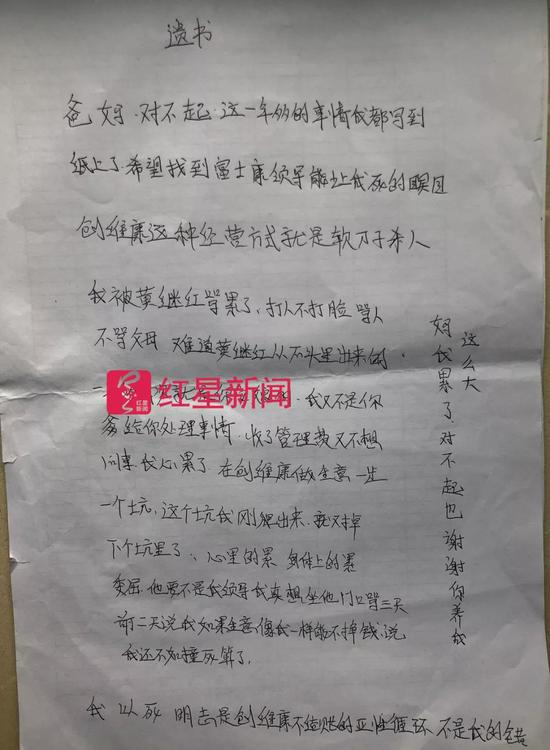 遗书
爸妈.对不起.这一年多的事情我都写到
纸上了.希望找到富士康领导能让我死的瞑目
创维康这种经营方式就是软刀子杀人
我被黄继红骂累了,打人不打脸骂人
不骂父母 难道黄继红从石头里出来的.
我又不是你
爹给你处理事情.收了管理费又不想
问事.我心累了.在创维康做生意一步
一个坑,这个坑我刚爬出来.就又掉
下个坑里了.心里的累 身体上的累
委屈.他要不是我领导我真想坐他门口骂三天
前二天说我如果生意像我一样能不掉钱.说
我还不如撞死算了.
我以死明志是创维康不结账的恶性循环 不是我的错
妈我累了.对不起也谢谢你养我
这么大
红星新闻
红星
新闻